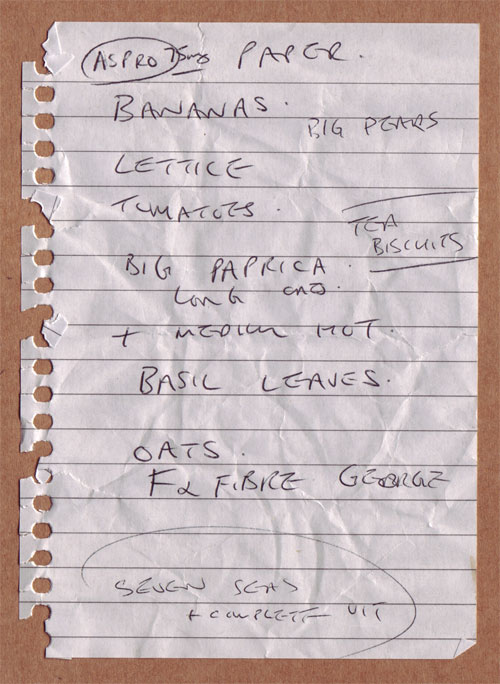 ASPRO 75mg PAPER.
BANANAS.
BIG PEARS
LETTICE
TOMATOES.
TEA
BISCUITS
BIG PAPRICA.
LONG ONES.
+ MEDIUM HOT.
BASIL LEAVES.
OATS.
F2 FIBRE GEORGE
SEVEN SEAS
+ COMPLETE VIT